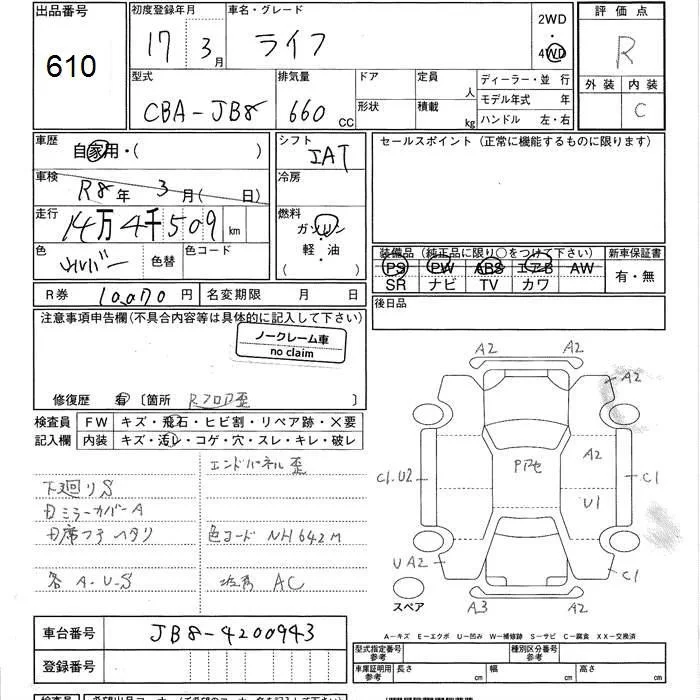 出品番号 初度登録年月 車名・グレード 2WD 評価点
610 17 3月 ライフ ・ R
4WD
型式 排気量 ドア 定員 ディーラー・並 行 外装 内装
CBA-JB8 660 CC 人 モデル年式 年 C
形状 積載 kg ハンドル 左・右
車歴 自家用・( ) シフト IAT セールスポイント (正常に機能するものに限ります)
車検 R8年 3月( 日) 冷房
走行 14万4千509 km 燃料 ガソリン
軽・油
( )
色 シルバー 色替 色コード 装備品 (純正品に限り○をつけて下さい) 新車保証書
PS PW ABS エアB AW 有・無
SR ナビ TV カワ
R券 10,070円 名変期限 月 日 後日品
注意事項申告欄(不具合内容等は具体的に記入して下さい)
ノークレーム車
no claim
修復歴 有 〔箇所 Rフロア歪 〕
検査員 FW キズ・飛石・ヒビ割・リペア跡・×要
記入欄 内装 キズ・汚レ・コゲ・穴・スレ・キレ・破レ
エンドパネル歪
下廻りS
ミラーカバーA
席フチヘタリ 色コード NH642M
各A-U-S AC
A2 A2
A2
Pガラ A2
C1.U2 C1
U1
UA2 C1
スペア A3 A2
車台番号 JB8-4200943
登録番号
A-キズ E-エクボ U-凹み W-補修跡 S-サビ C-腐食 XX-交換済
型式指定番号 参考 種別区分番号 参考
車庫証明用 参考 長さ cm 幅 cm 高さ cm